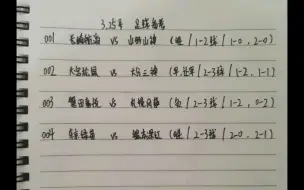 3.25号 足球参考
001 长崎航海 vs 山形山神 (胜 / 1-2球 / 1-0, 2-0)
002 大宫松鼠 vs 大分三神 (平, 负 / 2-3球 / 1-2, 1-1)
003 磐田喜悦 vs 札幌冈萨 (负 / 2-3球 / 1-2, 0-2)
004 东京绿茵 vs 熊本深红 (胜 / 2-3球 / 2-0, 2-1)